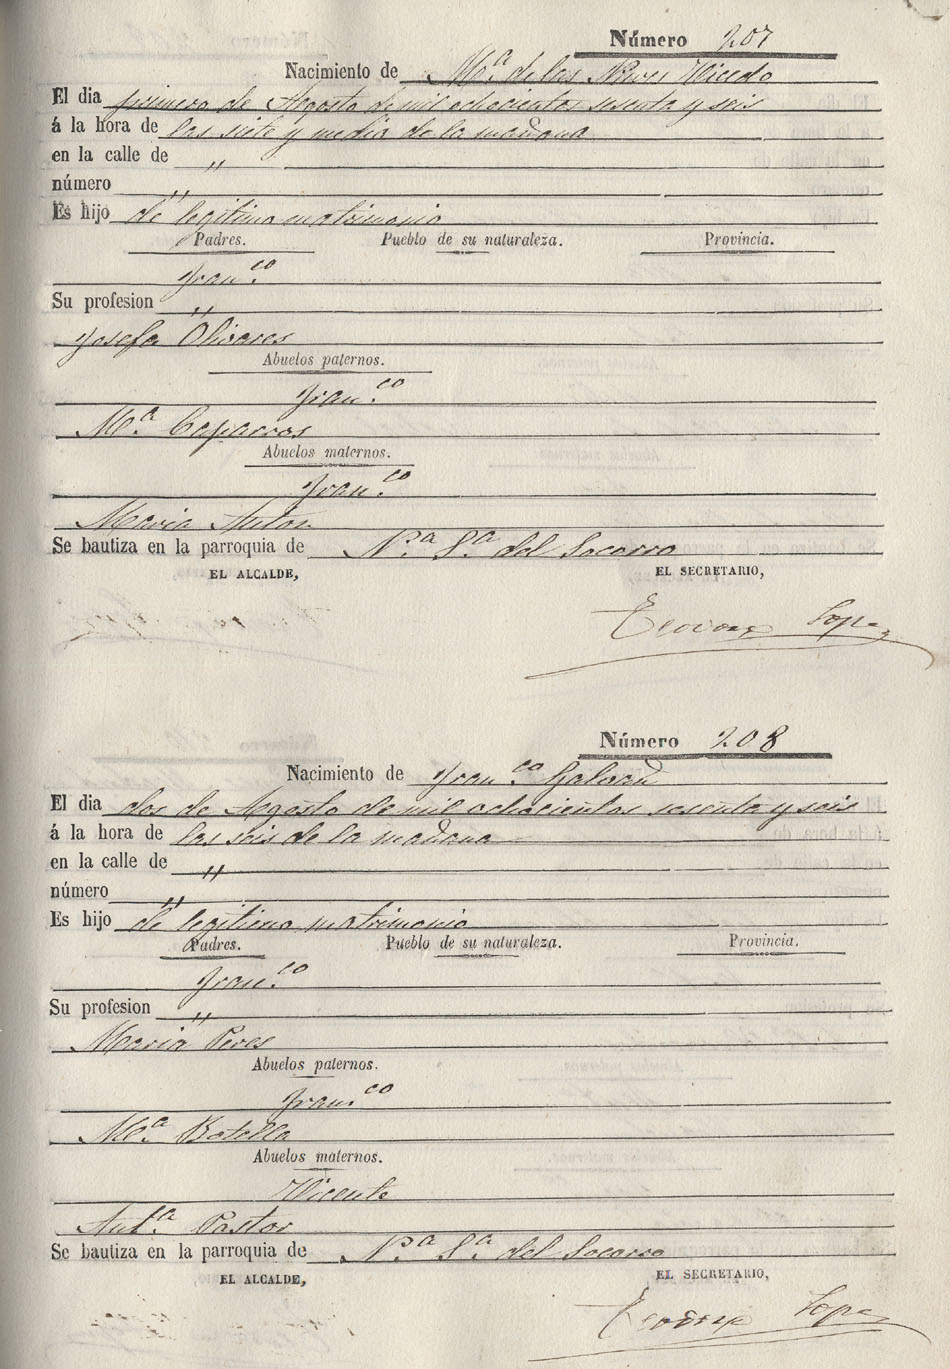 Número 207
Nacimiento de Mª de las Nieves Vicedo
El dia primero de Agosto de mil ochocientos sesenta y seis
á la hora de las siete y media de la mañana
en la calle de "
número "
Es hijo de legitimo matrimonio
Padres. Pueblo de su naturaleza. Provincia.
Fran.co
Su profesion "
Josefa Olivares
Abuelos paternos.
Fran.co
Mª. Caparros
Abuelos maternos.
Fran.co
Maria Anton
Se bautiza en la parroquia de N.ª S.ª del Socorro
EL ALCALDE, EL SECRETARIO,
Lopez
Número 208
Nacimiento de Fran.co Galvañ
El dia dos de Agosto de mil ochocientos sesenta y seis
á la hora de las seis de la mañana
en la calle de "
número "
Es hijo de legitimo matrimonio
Padres. Pueblo de su naturaleza. Provincia.
Fran.co
Su profesion "
Maria Peres
Abuelos paternos.
Fran.co
Mª. Botella
Abuelos maternos.
Vicente
Ant.ª Pastor
Se bautiza en la parroquia de N.ª S.ª del Socorro
EL ALCALDE, EL SECRETARIO,
Lopez